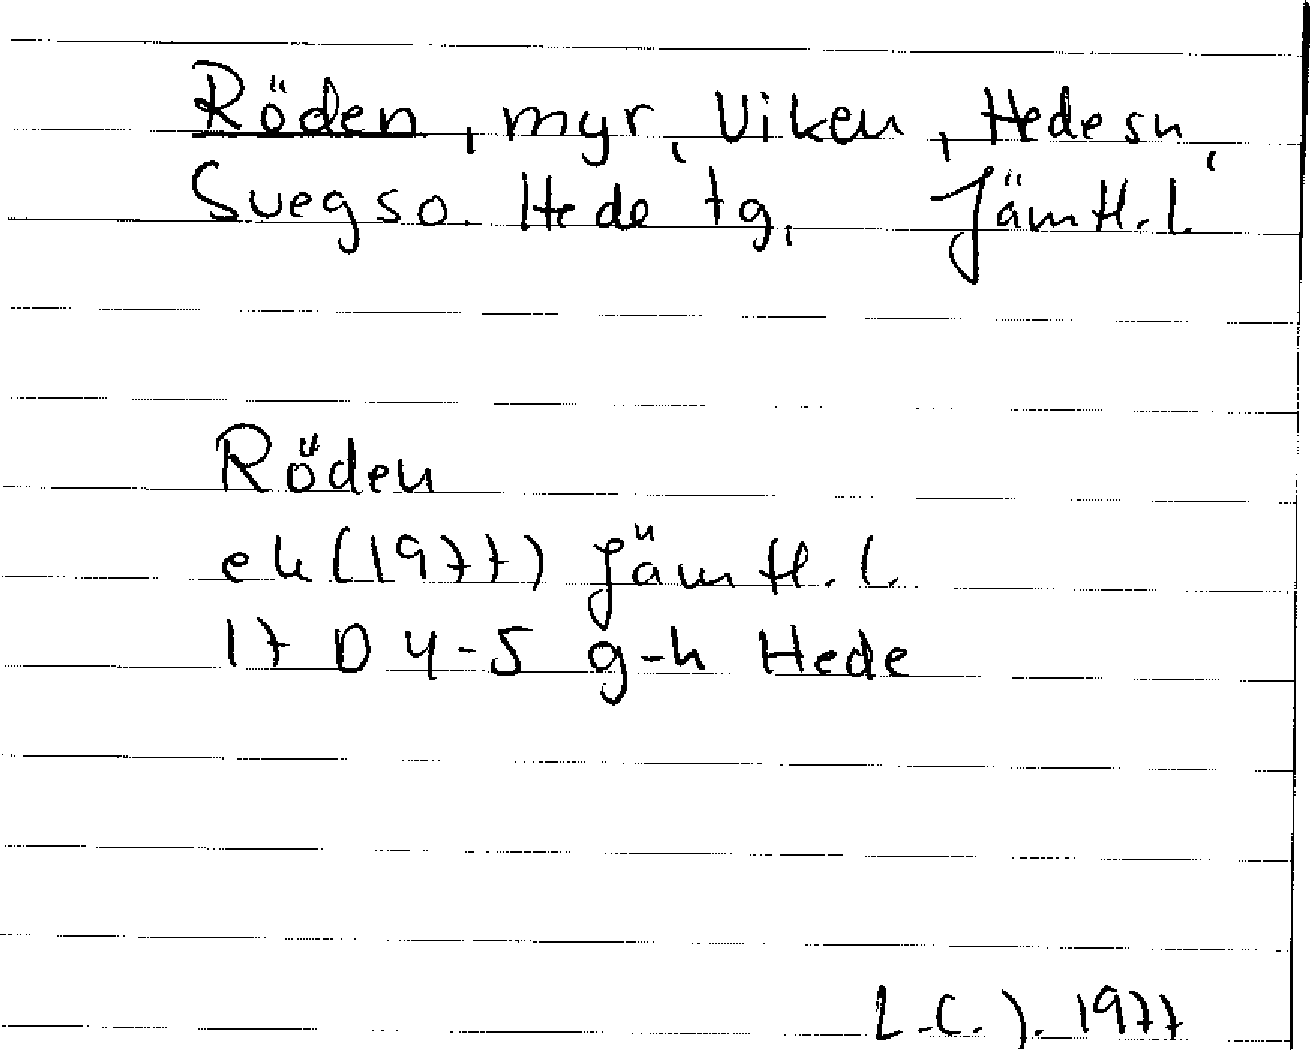 Röden, myr, Viken, Hede sn,
Svegs o. Hede tg, Jämtl. l.
Röden
ek (1977) Jämtl. l.
17 D 4-5 g-h Hede
L.C.J. 1977